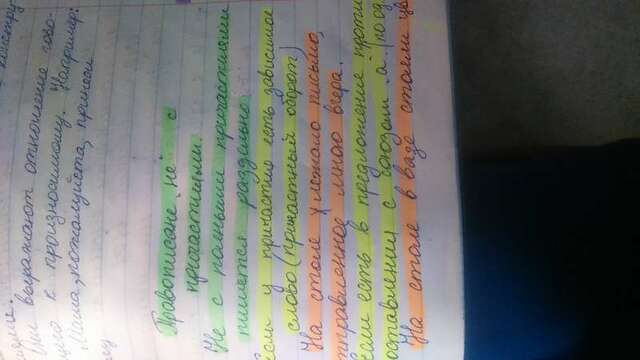 констру
шение.
выражают отношение гово-
щего к произносимому. Например:
Маша, пожалуйста, принеси
Правописане не с
причастиями.
Не с полными причастиями
пишется раздельно
Если у причастие есть зависимое
слово (причастный оборот)
На столе лежало письмо,
отправленное мною вчера.
если есть в предложение проти
оставления с союзом а
На столе в вазе стояли цв